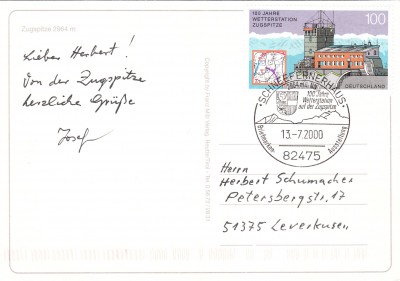 Zugspitze 2964 m
Lieber Herbert!
Von der Zugspitze
herzliche Grüße
Josef
100 JAHRE
WETTERSTATION
ZUGSPITZE
100
DEUTSCHLAND
SCHNEEFERNERHAUS
100 Jahre
Wetterstation
auf der Zugspitze
Briefmarken-
Ausstellung
13.-7.2000
82475
Herrn
Herbert Schumacher
Petersbergstr. 17
51375 Leverkusen